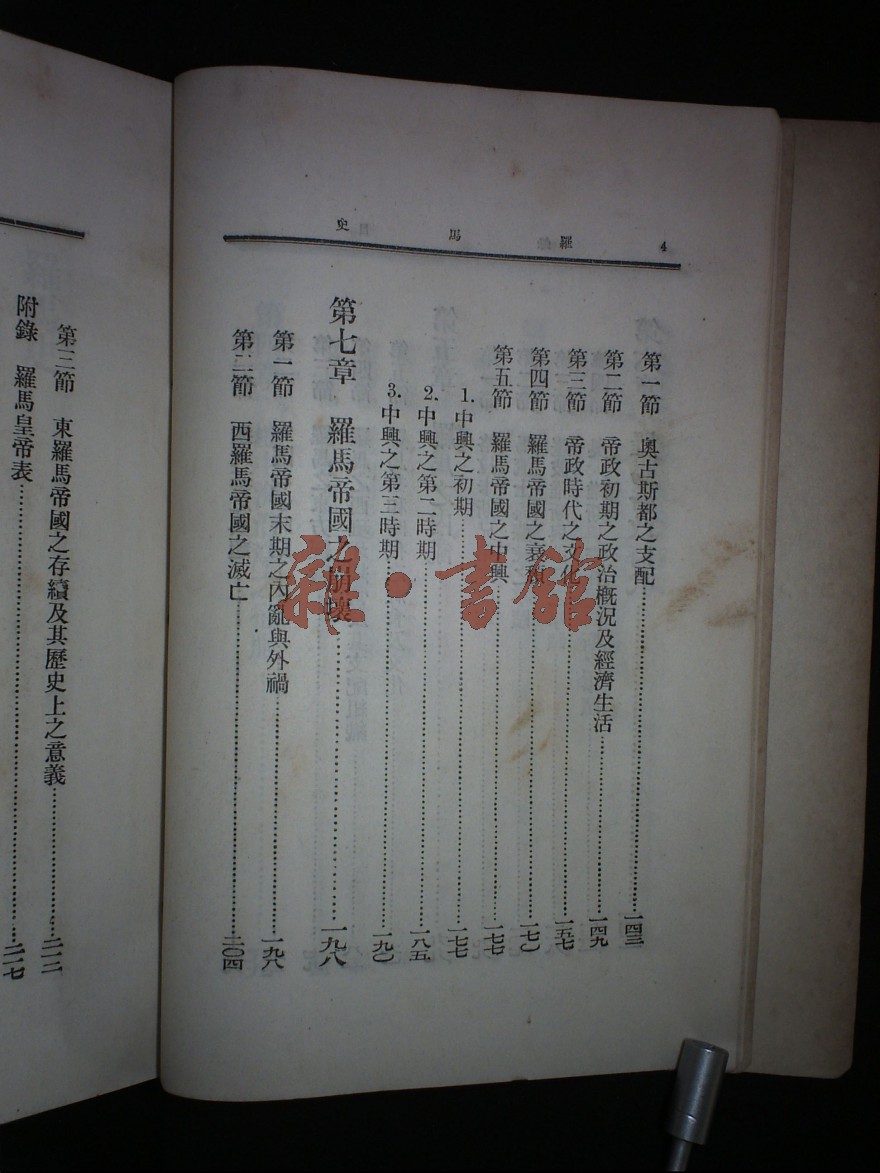 4 羅馬史
第一節 奧古斯都之支配 一四三
第二節 帝政初期之政治概況及經濟生活 一四九
第三節 帝政時代之文化 一五七
第四節 羅馬帝國之衰 一七〇
第五節 羅馬帝國之中興 一七七
1. 中興之初期 一七七
2. 中興之第二時期 一八五
3. 中興之第三時期 一九〇
第七章 羅馬帝國之崩壞 一九八
第一節 羅馬帝國末期之內亂與外禍 一九八
第二節 西羅馬帝國之滅亡 二〇四
第三節 東羅馬帝國之存續及其歷史上之意義 二一二
附錄 羅馬皇帝表 二一七
雜·書館